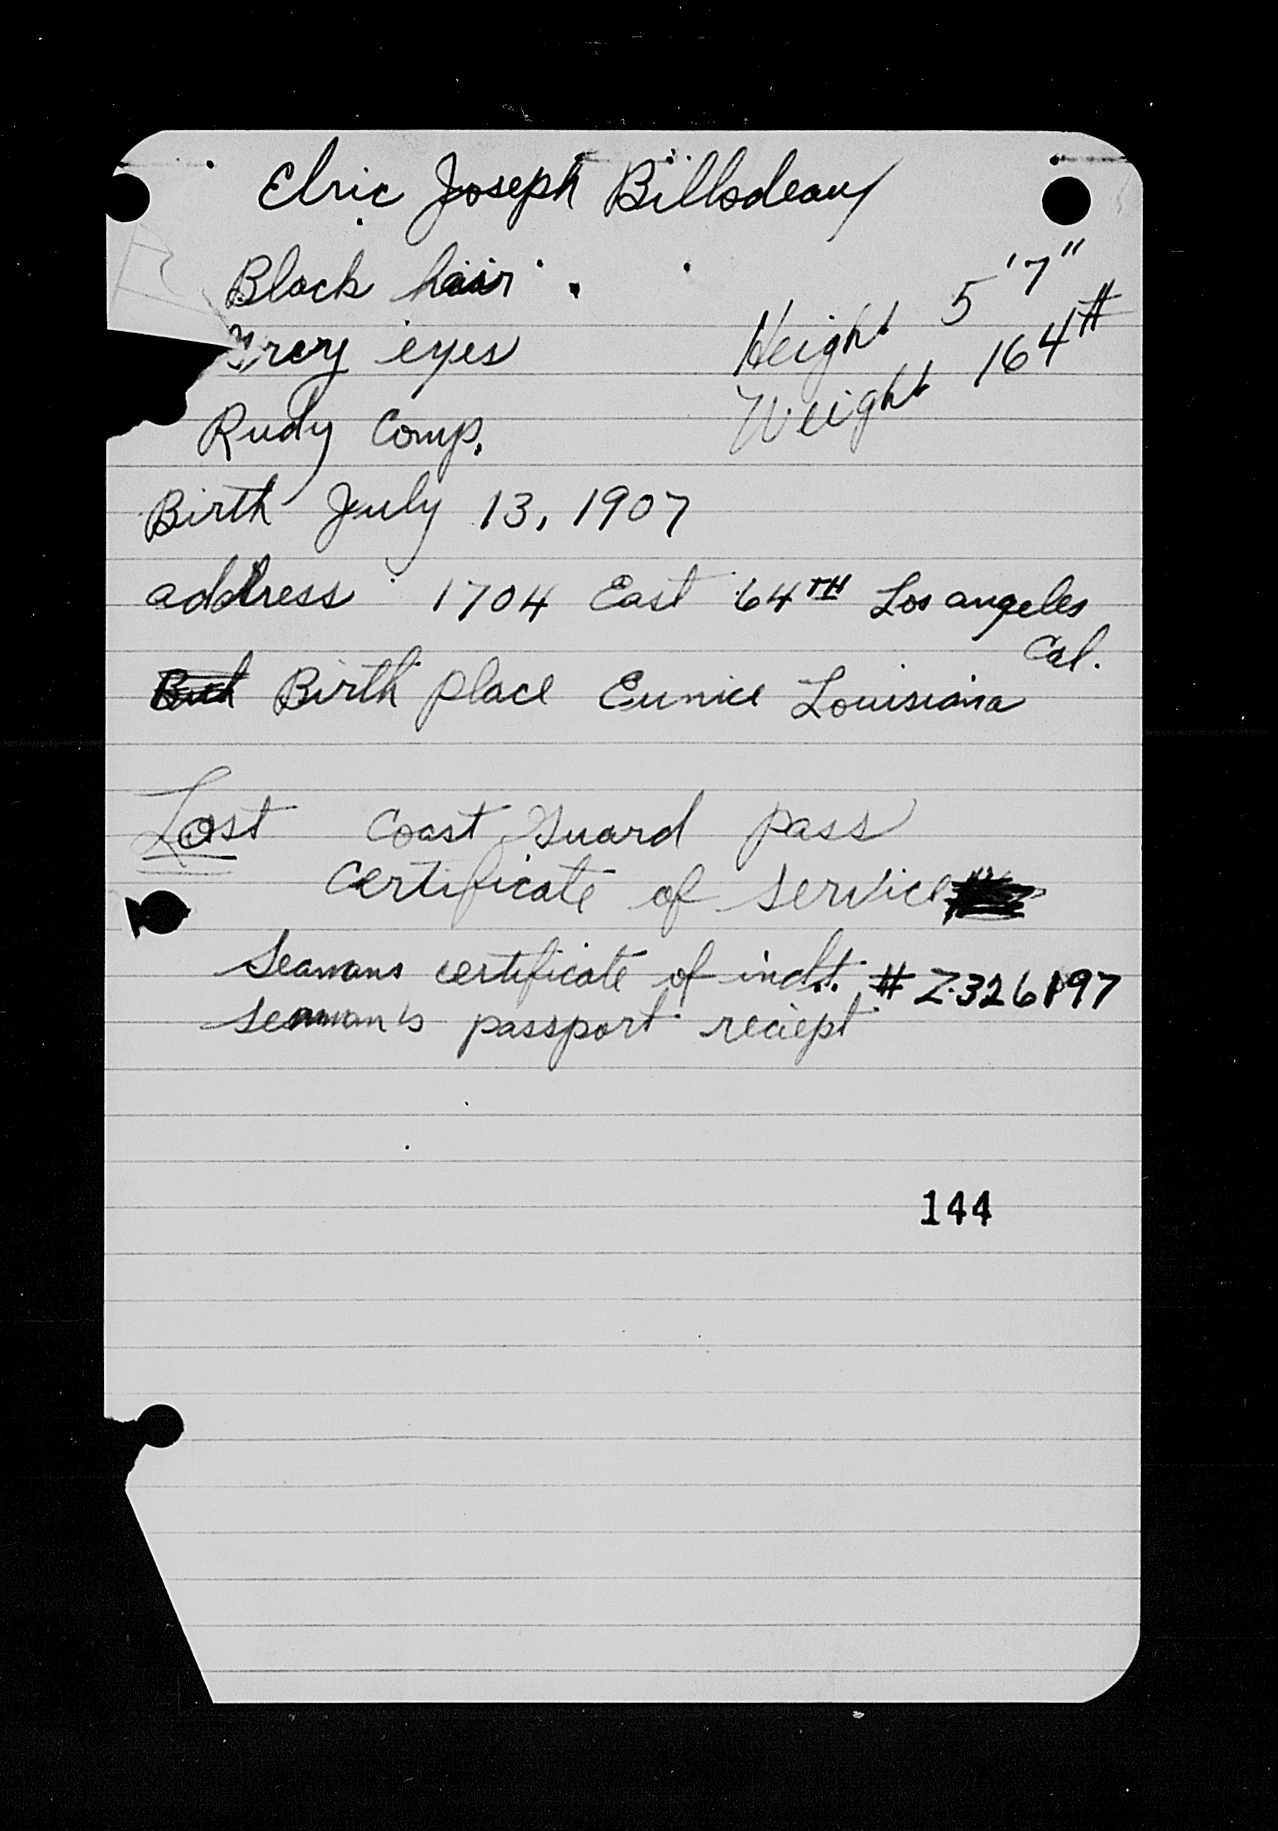 Elric Joseph Billodeaux
Black hair.
Grey eyes
Height 5'7"
Weight 164#
Rudy Comp.
Birth July 13, 1907
address 1704 East 64TH Los angeles
Cal.
Birth place Eunice Louisiana
Lost Coast Guard pass
Certificate of service
Seamans certificate of indt. # Z.326197
Seaman's passport reciept
144